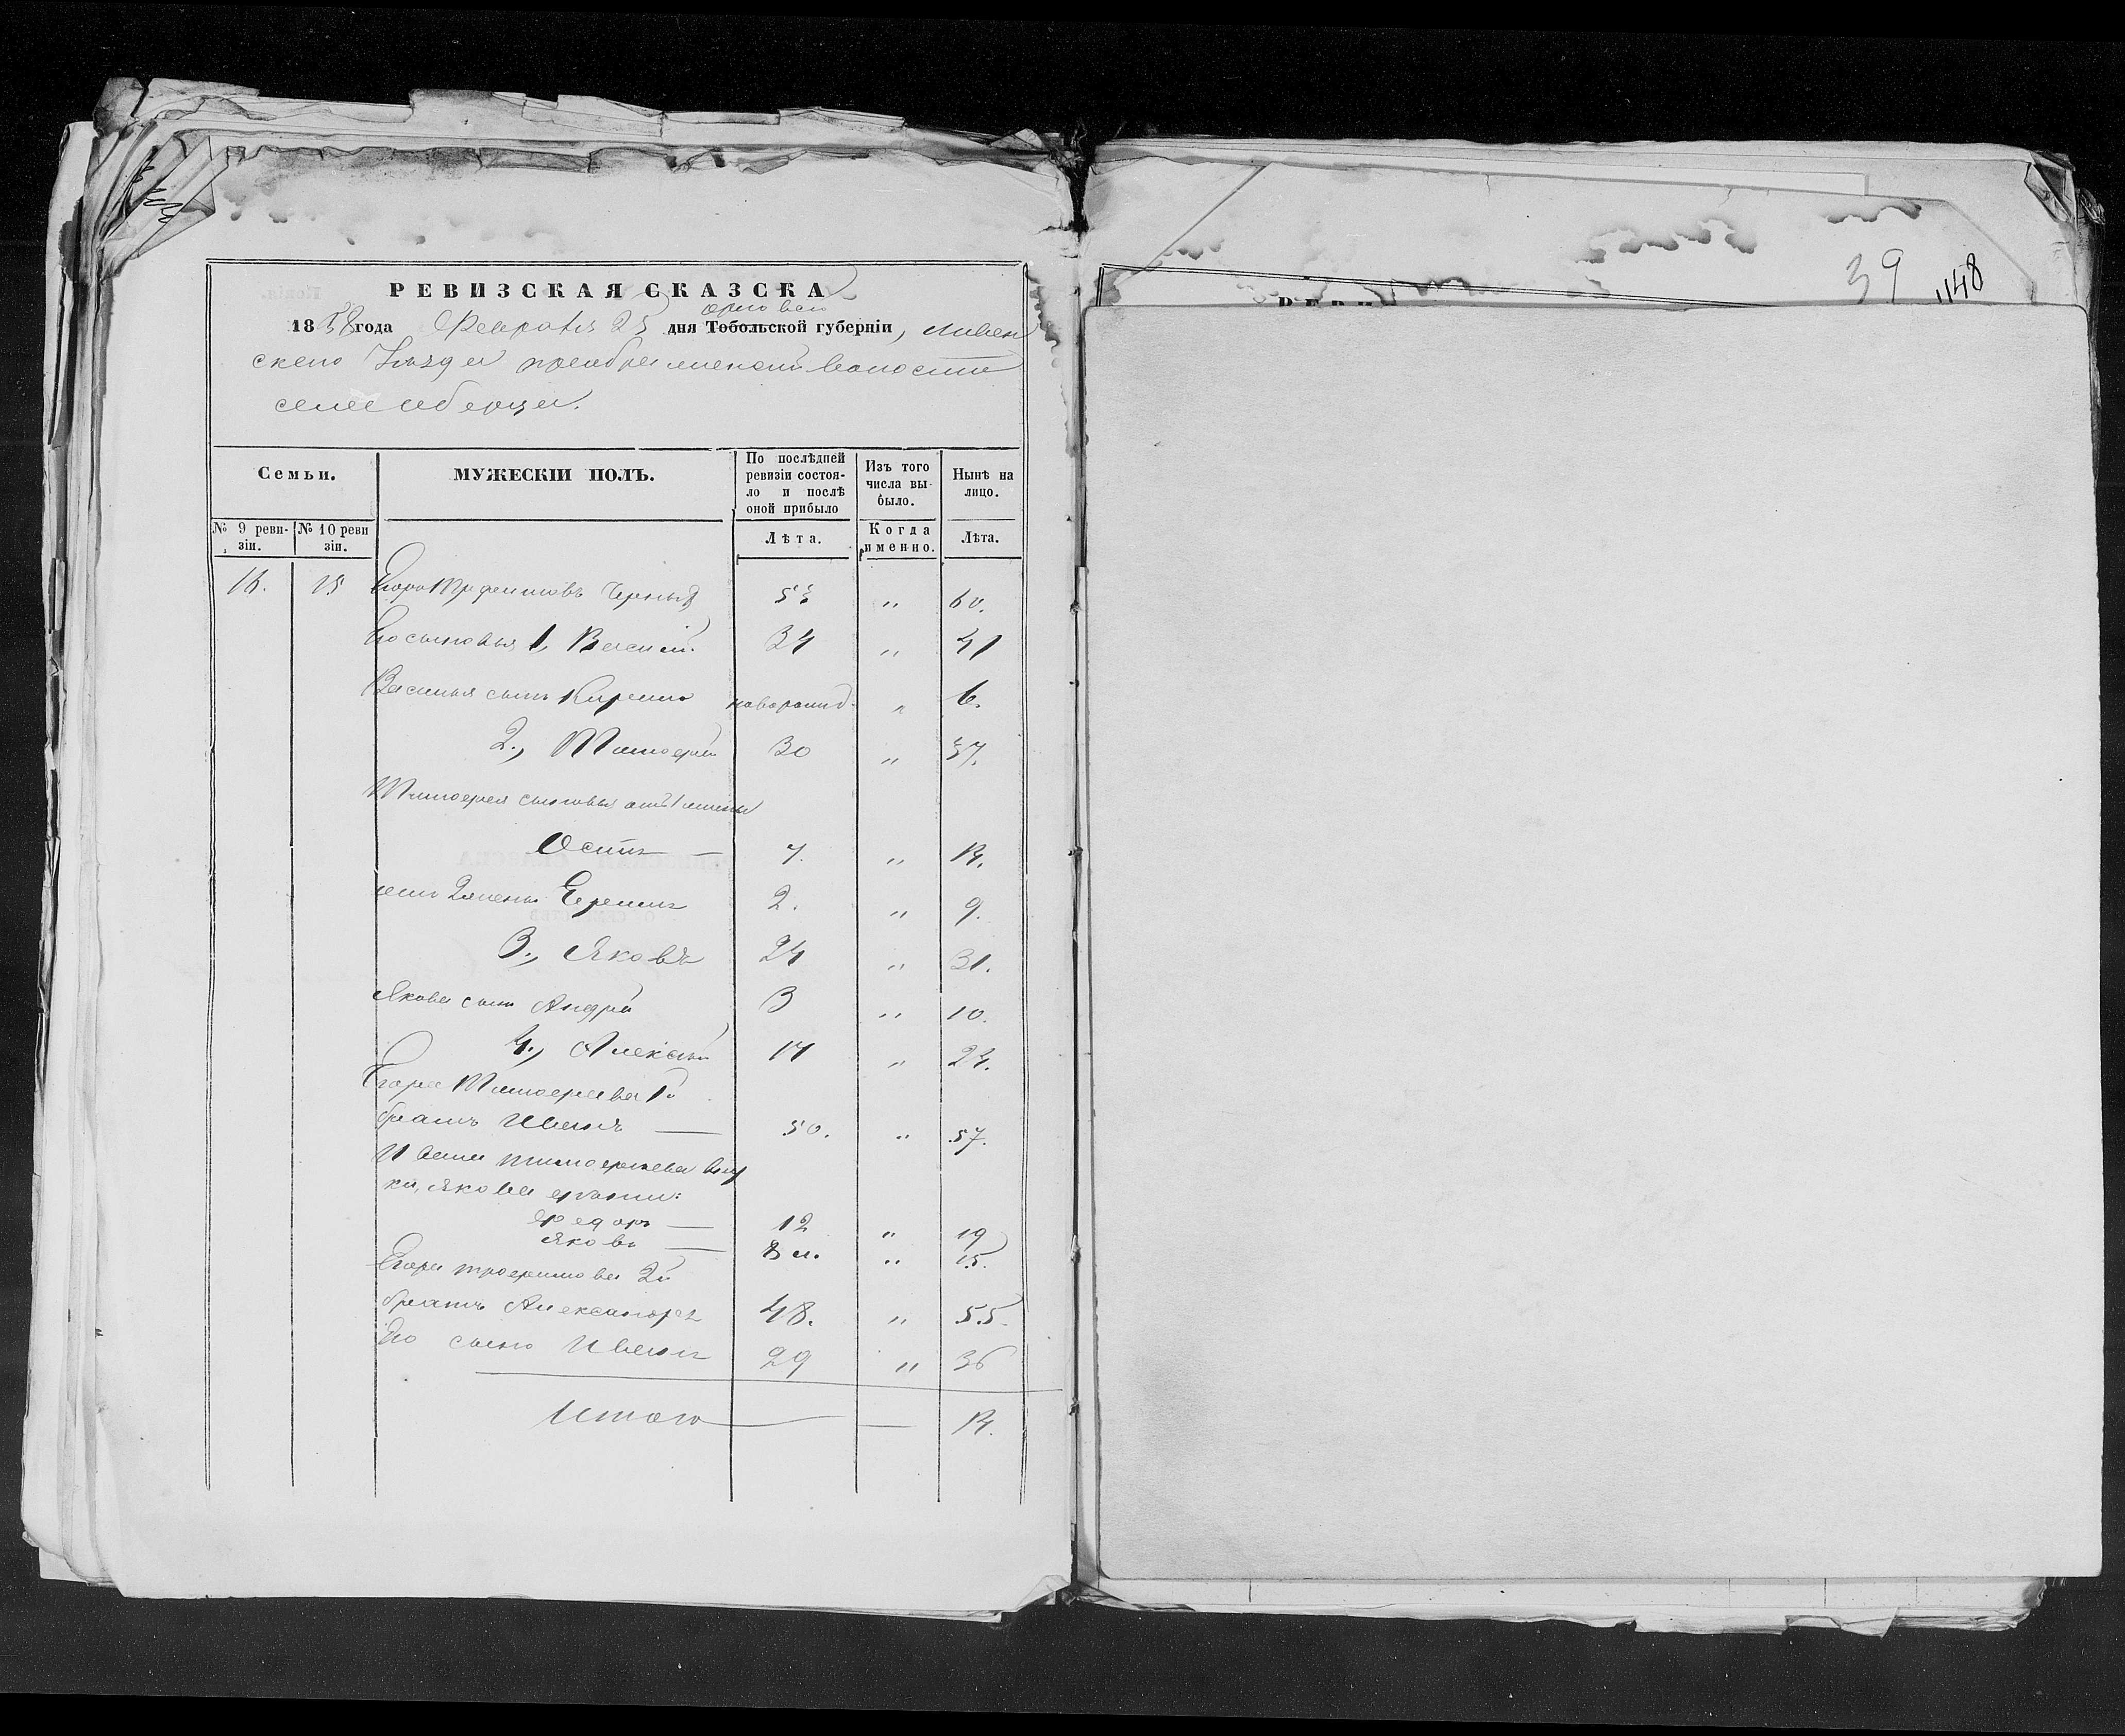 РЕВИЗСКАЯ СКАЗСКА
1858 года Февраля 25 дня Тобольской губерніи, Ливен
скаго Уѣзда волости
села
Семьи.
МУЖЕСКІЙ ПОЛЪ.
По послѣдней ревизіи состояло и послѣ оной прибыло
Изъ того числа выбыло.
Нынѣ на лицо.
№ 9 ревизіи.
№ 10 ревизіи.
Лѣта.
Когда именно.
Лѣта.
16. 15 Егоръ Трофимовъ Черныхъ 53 " 60.
Его сыновья 1, Василій 34 " 41
Василья сынъ новорожд. " 6.
2., Тимофей 30 " 37.
Тимофея сыновья отъ 1 жены
Осипъ — 7. " 14.
отъ 2 жены 2. " 9.
3., Яковъ 24 " 31.
Якова сынъ Андрей 3 " 10.
4., Алексѣй 17 " 24.
Егора 1й
братъ Иванъ — 50. " 57.
Ивана вну
ки, Якова
Федоръ — 12 " 19
Яковъ — 8 " 15.
Егора Трофимова 2й
братъ Александръ 48. " 55.
Его сынъ Иванъ 29 " 36
Итого — — 14.
39
148